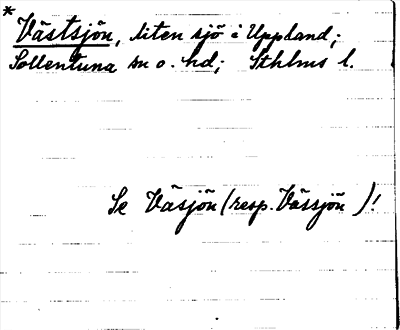 *
Västsjön, liten sjö i Uppland;
Sollentuna sn o. hd; Sthlms l.
Se Väsjön (resp. Vässjön )!